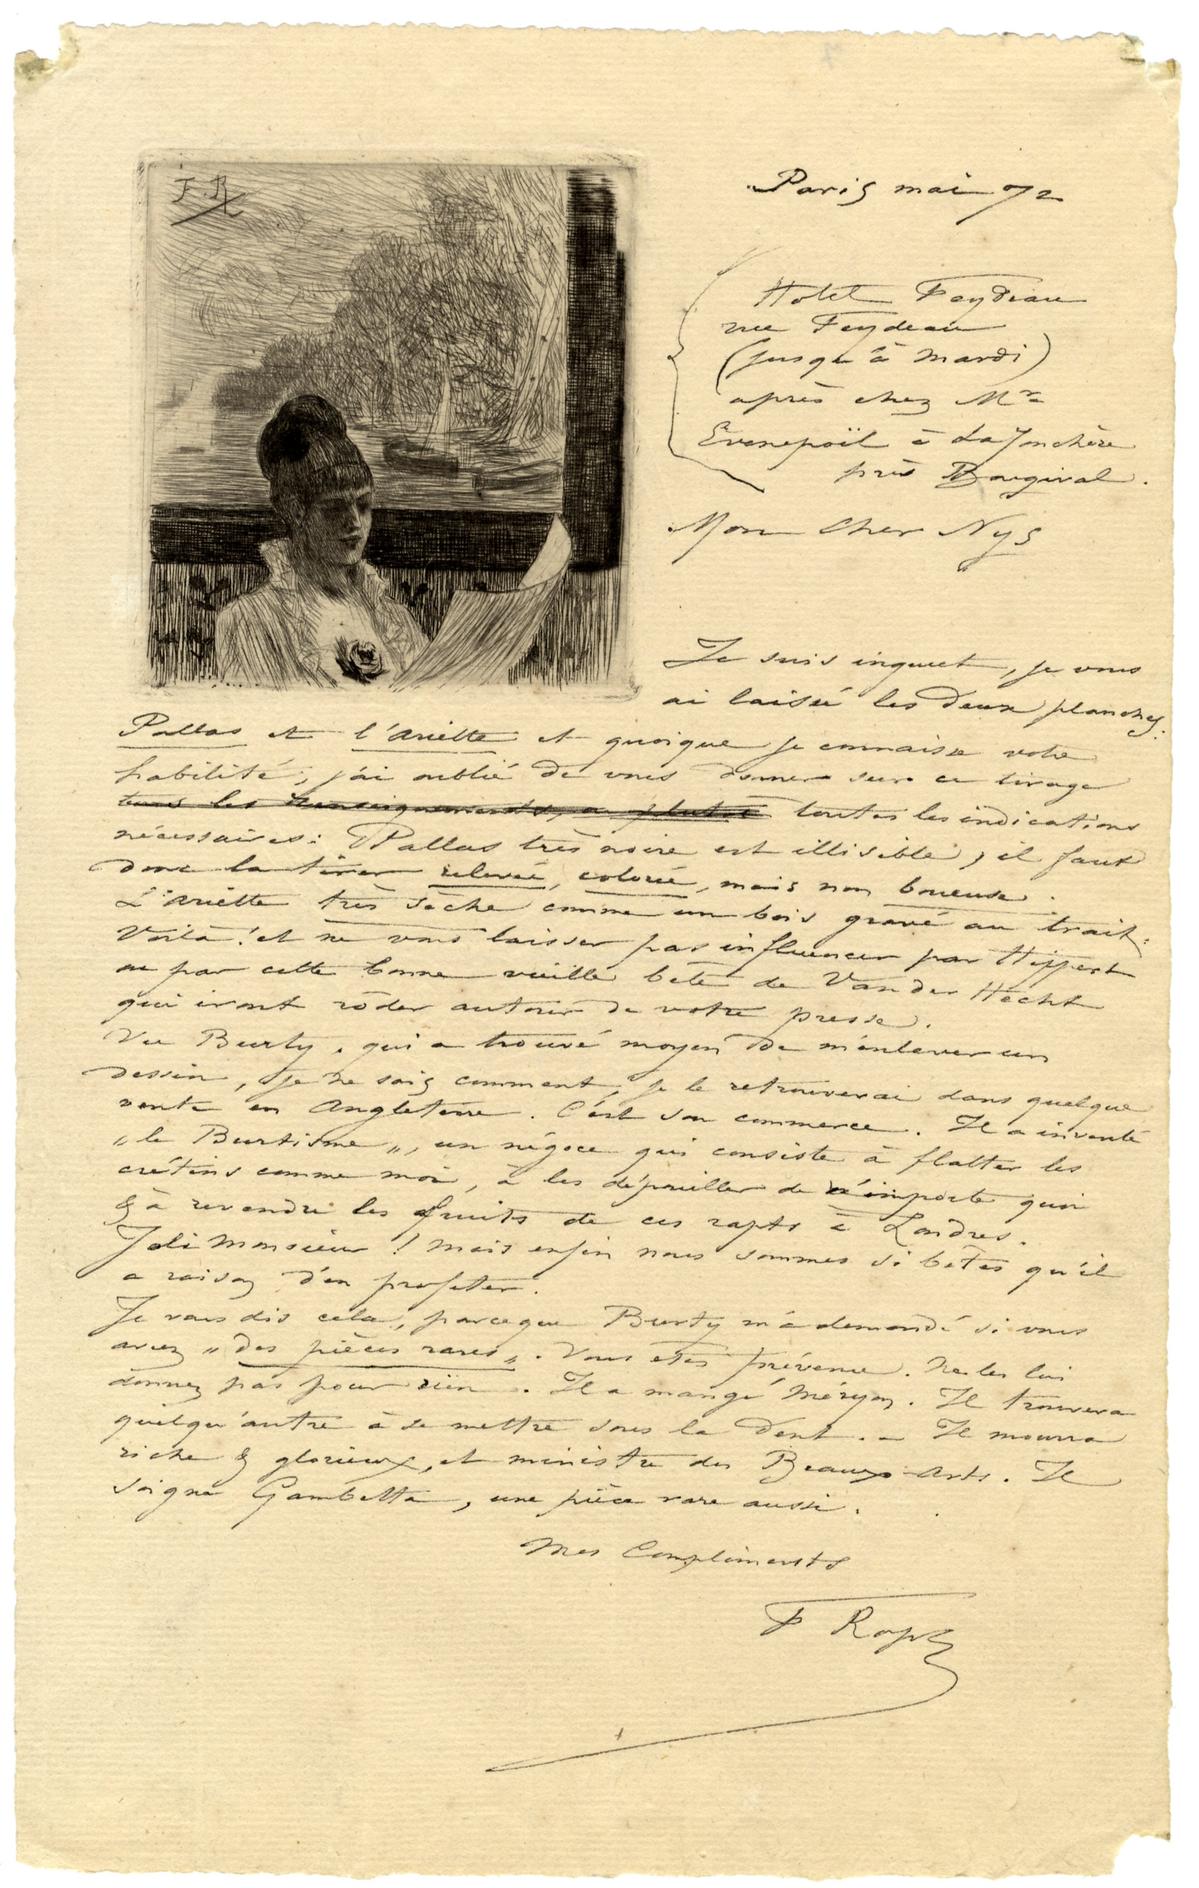 F.R
Paris mai 72
Hotel Feydeau
rue Feydeau
(jusqu'à mardi)
après chez Mr
Evenepoël à La Jonchère
près Bougival.
Mon cher Nys
Je suis inquiet, je vous
ai laissé les deux planches:
Pallas et l'Ariette et quoique je connaisse votre
habilité, j'ai oublié de vous donner sur ce tirage
tous les renseignements, ou plutôt toutes les indications
nécessaires: Pallas très noire est illisible, il faut
donc la tirer relevée, colorée, mais non boueuse.
L'Ariette très sèche comme un bois gravé au trait.
Voilà! et ne vous laisser pas influencer par Hippert
ou par cette bonne vieille bête de Van der Hecht
qui iront rôder autour de votre presse.
Vu Burty, qui a trouvé moyen de m'enlever un
dessin, je ne sais comment, je le retrouverai dans quelque
vente en Angleterre. C'est son commerce. Il a inventé
„le Burtisme„, un négoce qui consiste à flatter les
crétins comme moi, à les dépouiller de n'importe quoi
& à revendre les fruits de ces rapts à Londres.
Joli Monsieur! mais enfin nous sommes si bêtes qu'il
a raison d'en profiter.
Je vous dis cela, parceque Burty m'a demandé si vous
aviez „des pièces rares„. Vous êtes prévenu. Ne les lui
donnez pas pour rien. Il a mangé Méryon. Il trouvera
quelqu'autre à se mettre sous la dent. – Il mourra
riche & glorieux, et ministre des Beaux-Arts. Il
soigne Gambetta, une pièce rare aussi.
Mes Compliments
F Rops